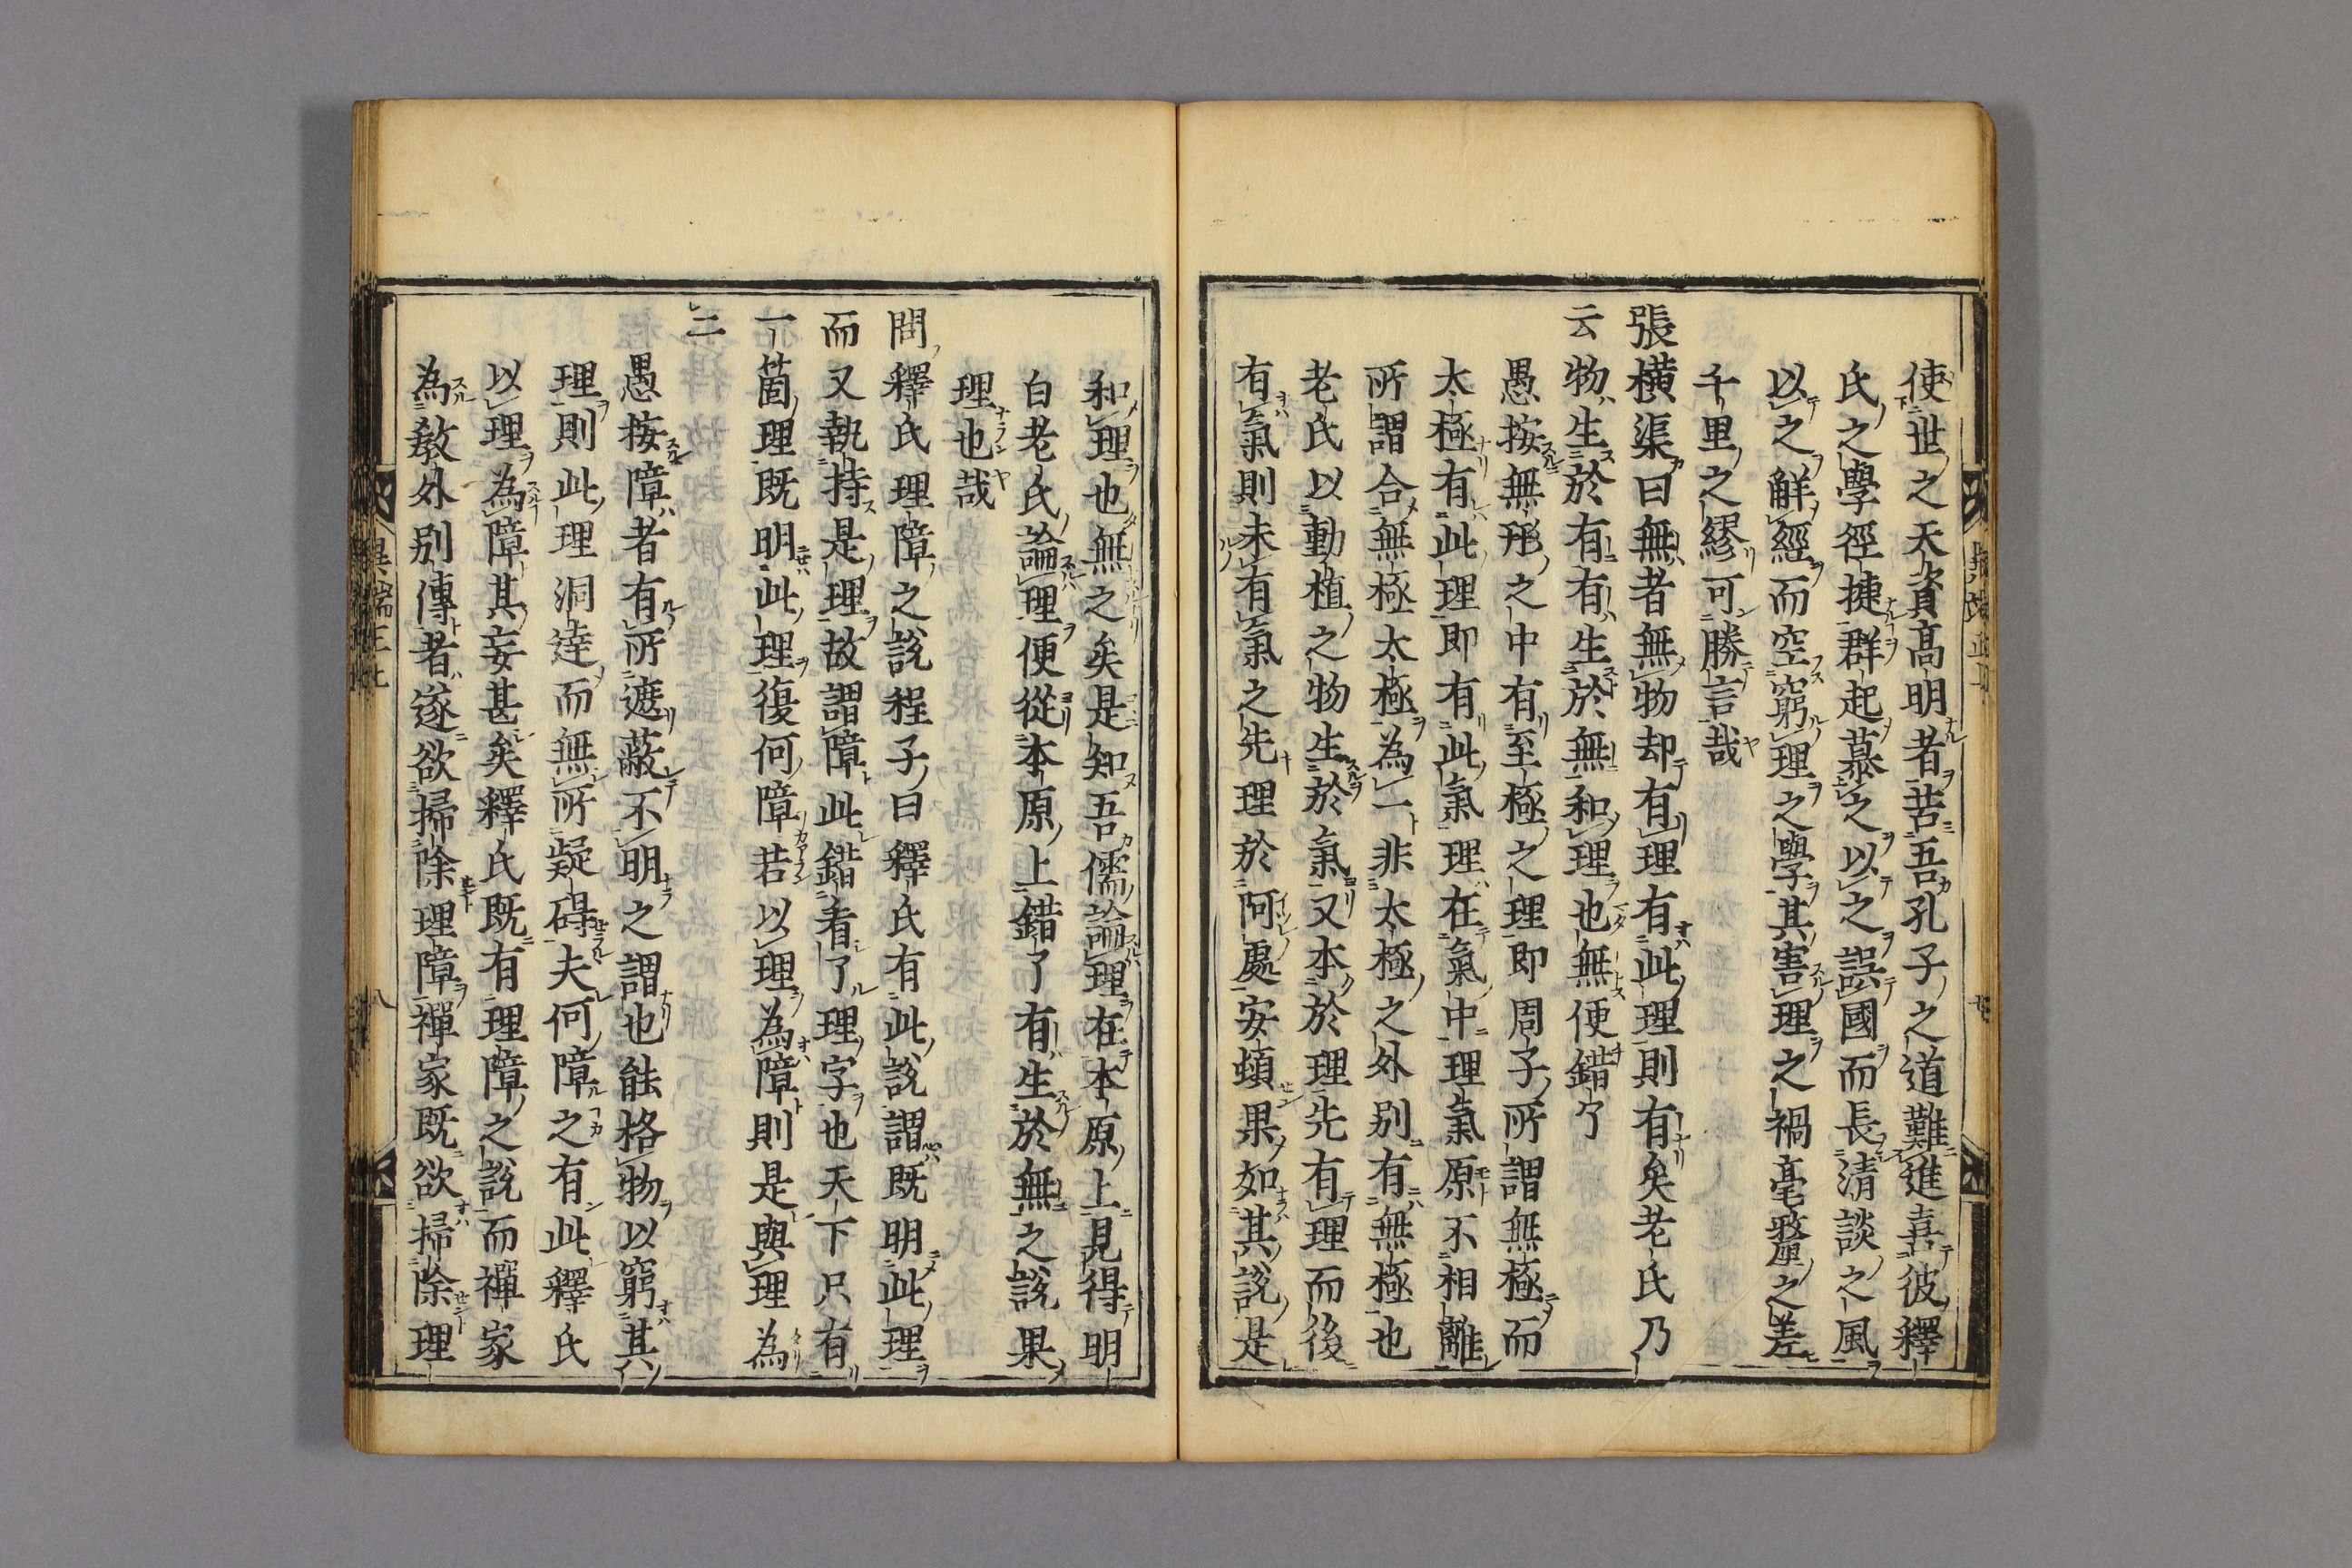 使世之天資高明者苦吾孔子之道難進喜彼釋
氏之學徑捷群起慕之以之誤國而長清談之風
以之解經而空窮理之學其害理之禍毫釐之差
千里之繆可勝言哉
張橫渠曰無者無物却有理有此理則有矣老氏乃
云物生於有有生於無和理也無便錯了
愚按無形之中有至極之理即周子所謂無極而
太極有此理即有此氣理在氣中理氣原不相離
所謂合無極太極為一非太極之外別有無極也
老氏以動植之物生於氣又本於理先有理而後
有氣則未有氣之先理於阿處安頓果如其說是
和理也無之矣是知吾儒論理在本原上見得明
白老氏論理便從本原上錯了有生於無之說果
理也哉
問釋氏理障之說程子曰釋氏有此說謂既明此理
而又執持是理故謂障此錯看了理字也天下只有
一箇理既明此理復何障若以理為障則是與理為
二
愚按障者有所遮蔽不明之謂也能格物以窮其
理則此理洞達而無所疑碍夫何障之有此釋氏
以理為障其妄甚矣釋氏既有理障之說而禪家
為教外別傳者遂欲掃除理障禪家既欲掃除理
異端正上
八